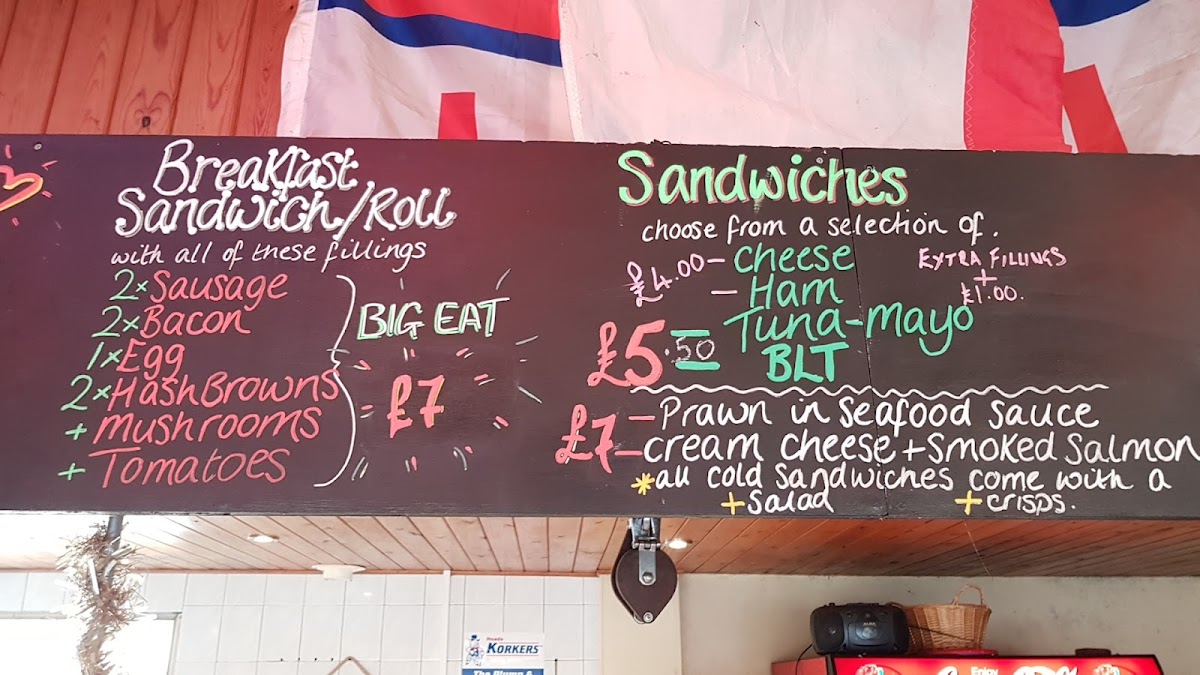 Breakfast
Sandwich/Roll
with all of these fillings
2× Sausage
2× Bacon
1× Egg
2× Hash Browns
+ Mushrooms
+ Tomatoes
BIG EAT
£7
Sandwiches
choose from a selection of.
£4.00 - Cheese
- Ham
EXTRA FILLINGS
+
£1.00.
£5.50 = Tuna-mayo
BLT
£7 - Prawn in Seafood Sauce
- cream cheese + Smoked Salmon
*all cold Sandwiches come with a
+ Salad + crisps.
KORKERS
Enjoy